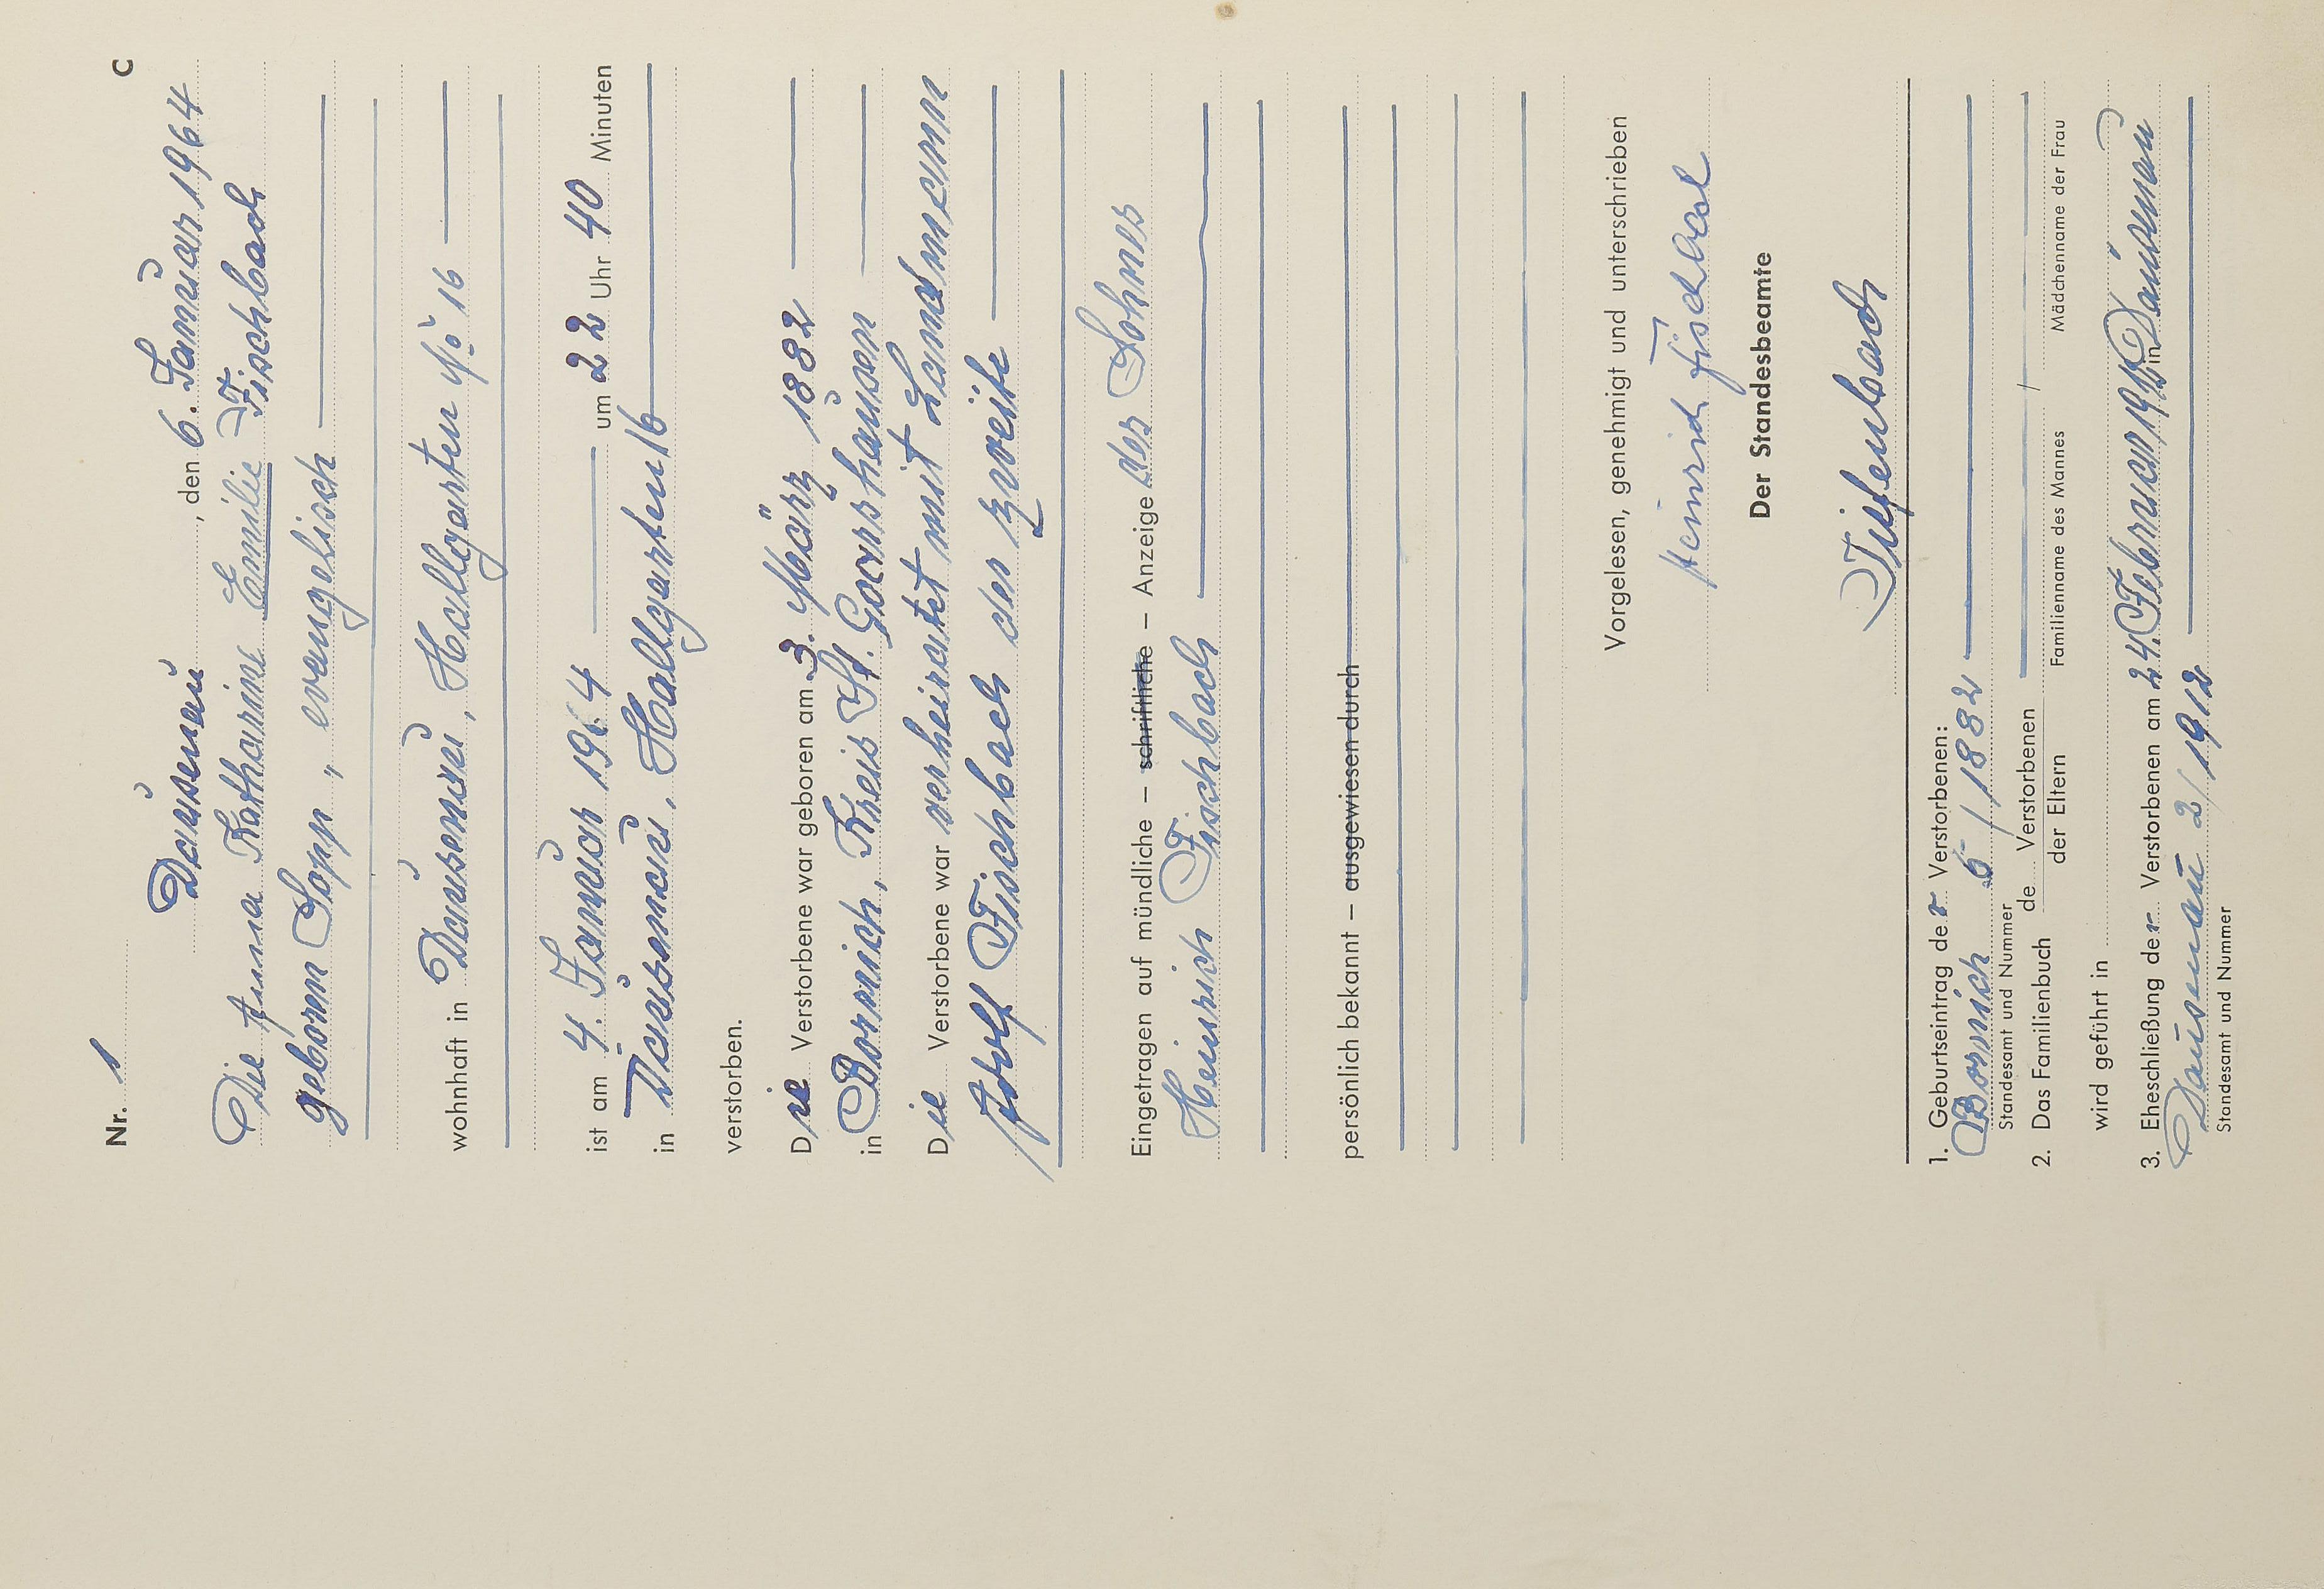 C
Nr. 1
Dausenau, den 6. Januar 1964
Die Anna Katharine Emilie Fischbach
geboren Sopp, evangelisch
wohnhaft in Dausenau, Hallgarten No 16
ist am 4. Januar 1964 um 22 Uhr 40 Minuten
in Dausenau, Hallgarten 16
verstorben.
Die Verstorbene war geboren am 3. März 1882
in Bornich, Kreis St. Goarshausen
Die Verstorbene war verheiratet mit Landmann
Adolf Fischbach der zweite
Eingetragen auf mündliche – schriftliche – Anzeige des Sohnes
Heinrich Fischbach
persönlich bekannt – ausgewiesen durch
Vorgelesen, genehmigt und unterschrieben
Heinrich Fischbach
Der Standesbeamte
Tiefenbach
1. Geburtseintrag der Verstorbenen:
Bornich 5/1882
Standesamt und Nummer
2. Das Familienbuch de Verstorbenen der Eltern /
Familienname des Mannes Mädchenname der Frau
wird geführt in
3. Eheschließung der Verstorbenen am 24. Februar 1912 in Dausenau
Dausenau 2/1912
Standesamt und Nummer